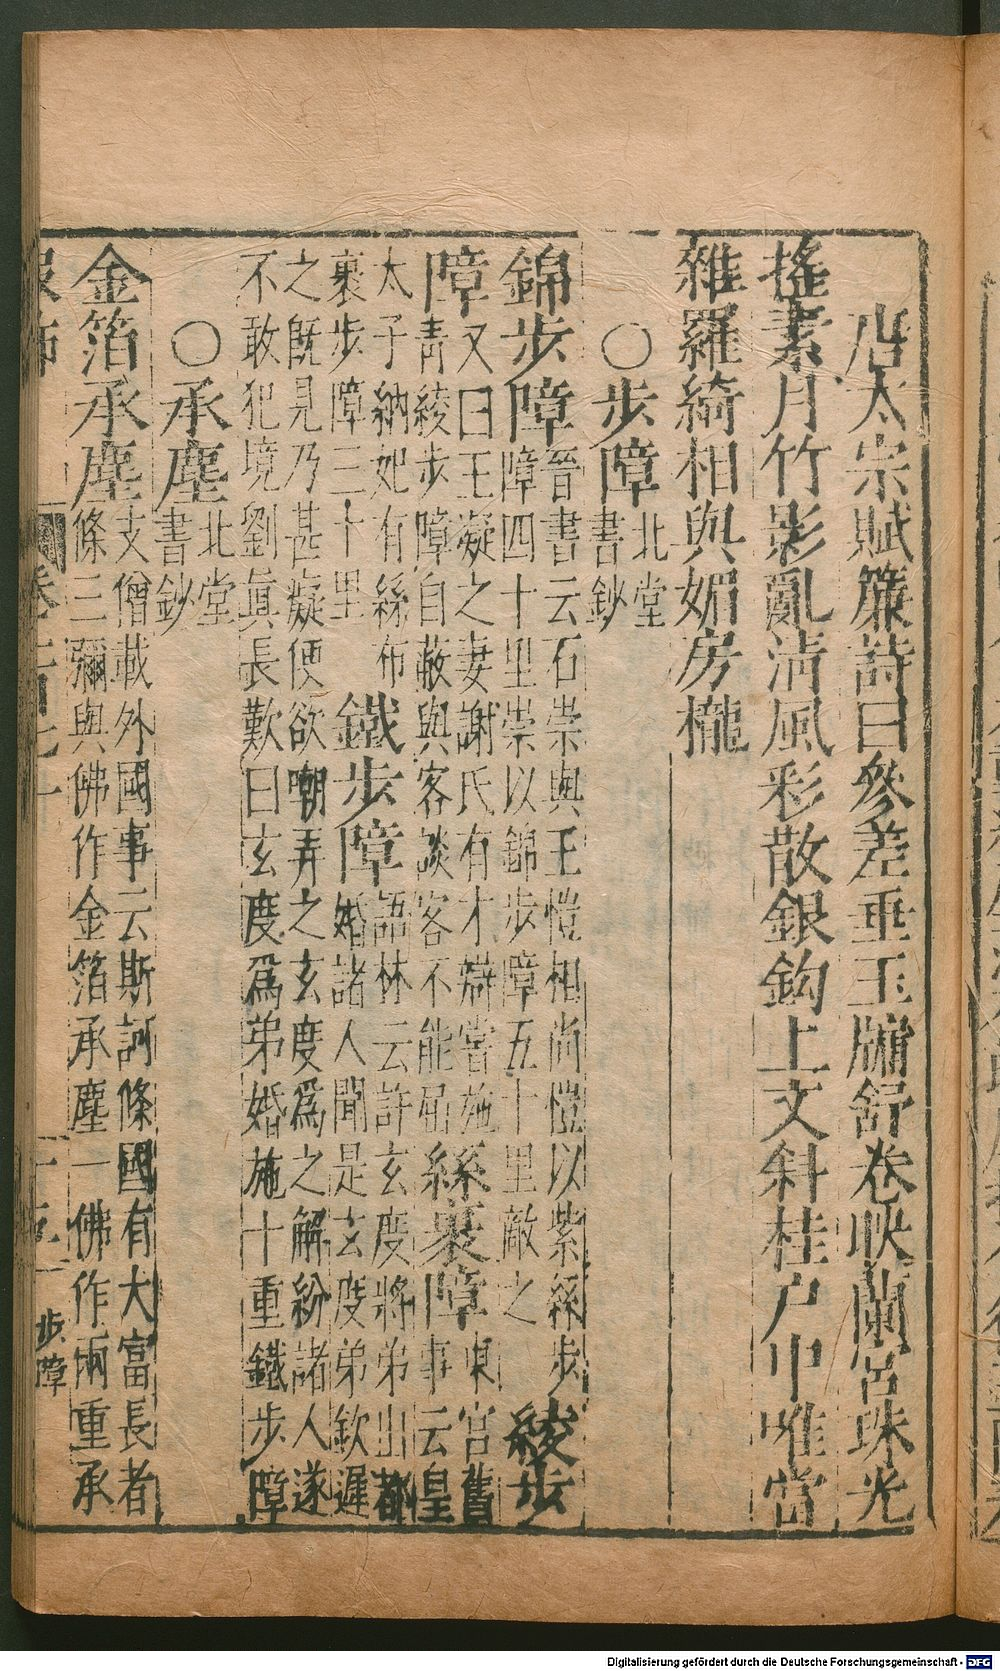 唐太宗賦簾詩曰參差垂玉牖舒卷映蘭宮珠光
搖素月竹影亂清風彩散銀鈎上文斜桂户中唯當
雜羅綺相與媚房櫳
○步障北堂
書鈔
錦步障晉書云石崇與王愷相尚愷以紫絲步
障四十里崇以錦步障五十里敵之 綾步
障又曰王凝之妻謝氏有才辯嘗施
青綾步障自蔽與客談客不能屈 絲裹障東宮舊
事云皇
太子納妃有絲布
裹步障三十里 鐵步障語林云許玄度將弟出都
婚諸人聞是玄度弟欽遲
之旣見乃甚癡便欲嘲弄之玄度爲之解紛諸人遂
不敢犯境劉眞長歎曰玄度爲弟婚施十重鐵步障
○承塵北堂
書鈔
金箔承塵支僧載外國事云斯訶條國有大富長者
條三彌與佛作金箔承塵一佛作兩重承
服飾
步障
Digitalisierung gefördert durch die Deutsche Forschungsgemeinschaft - DFG